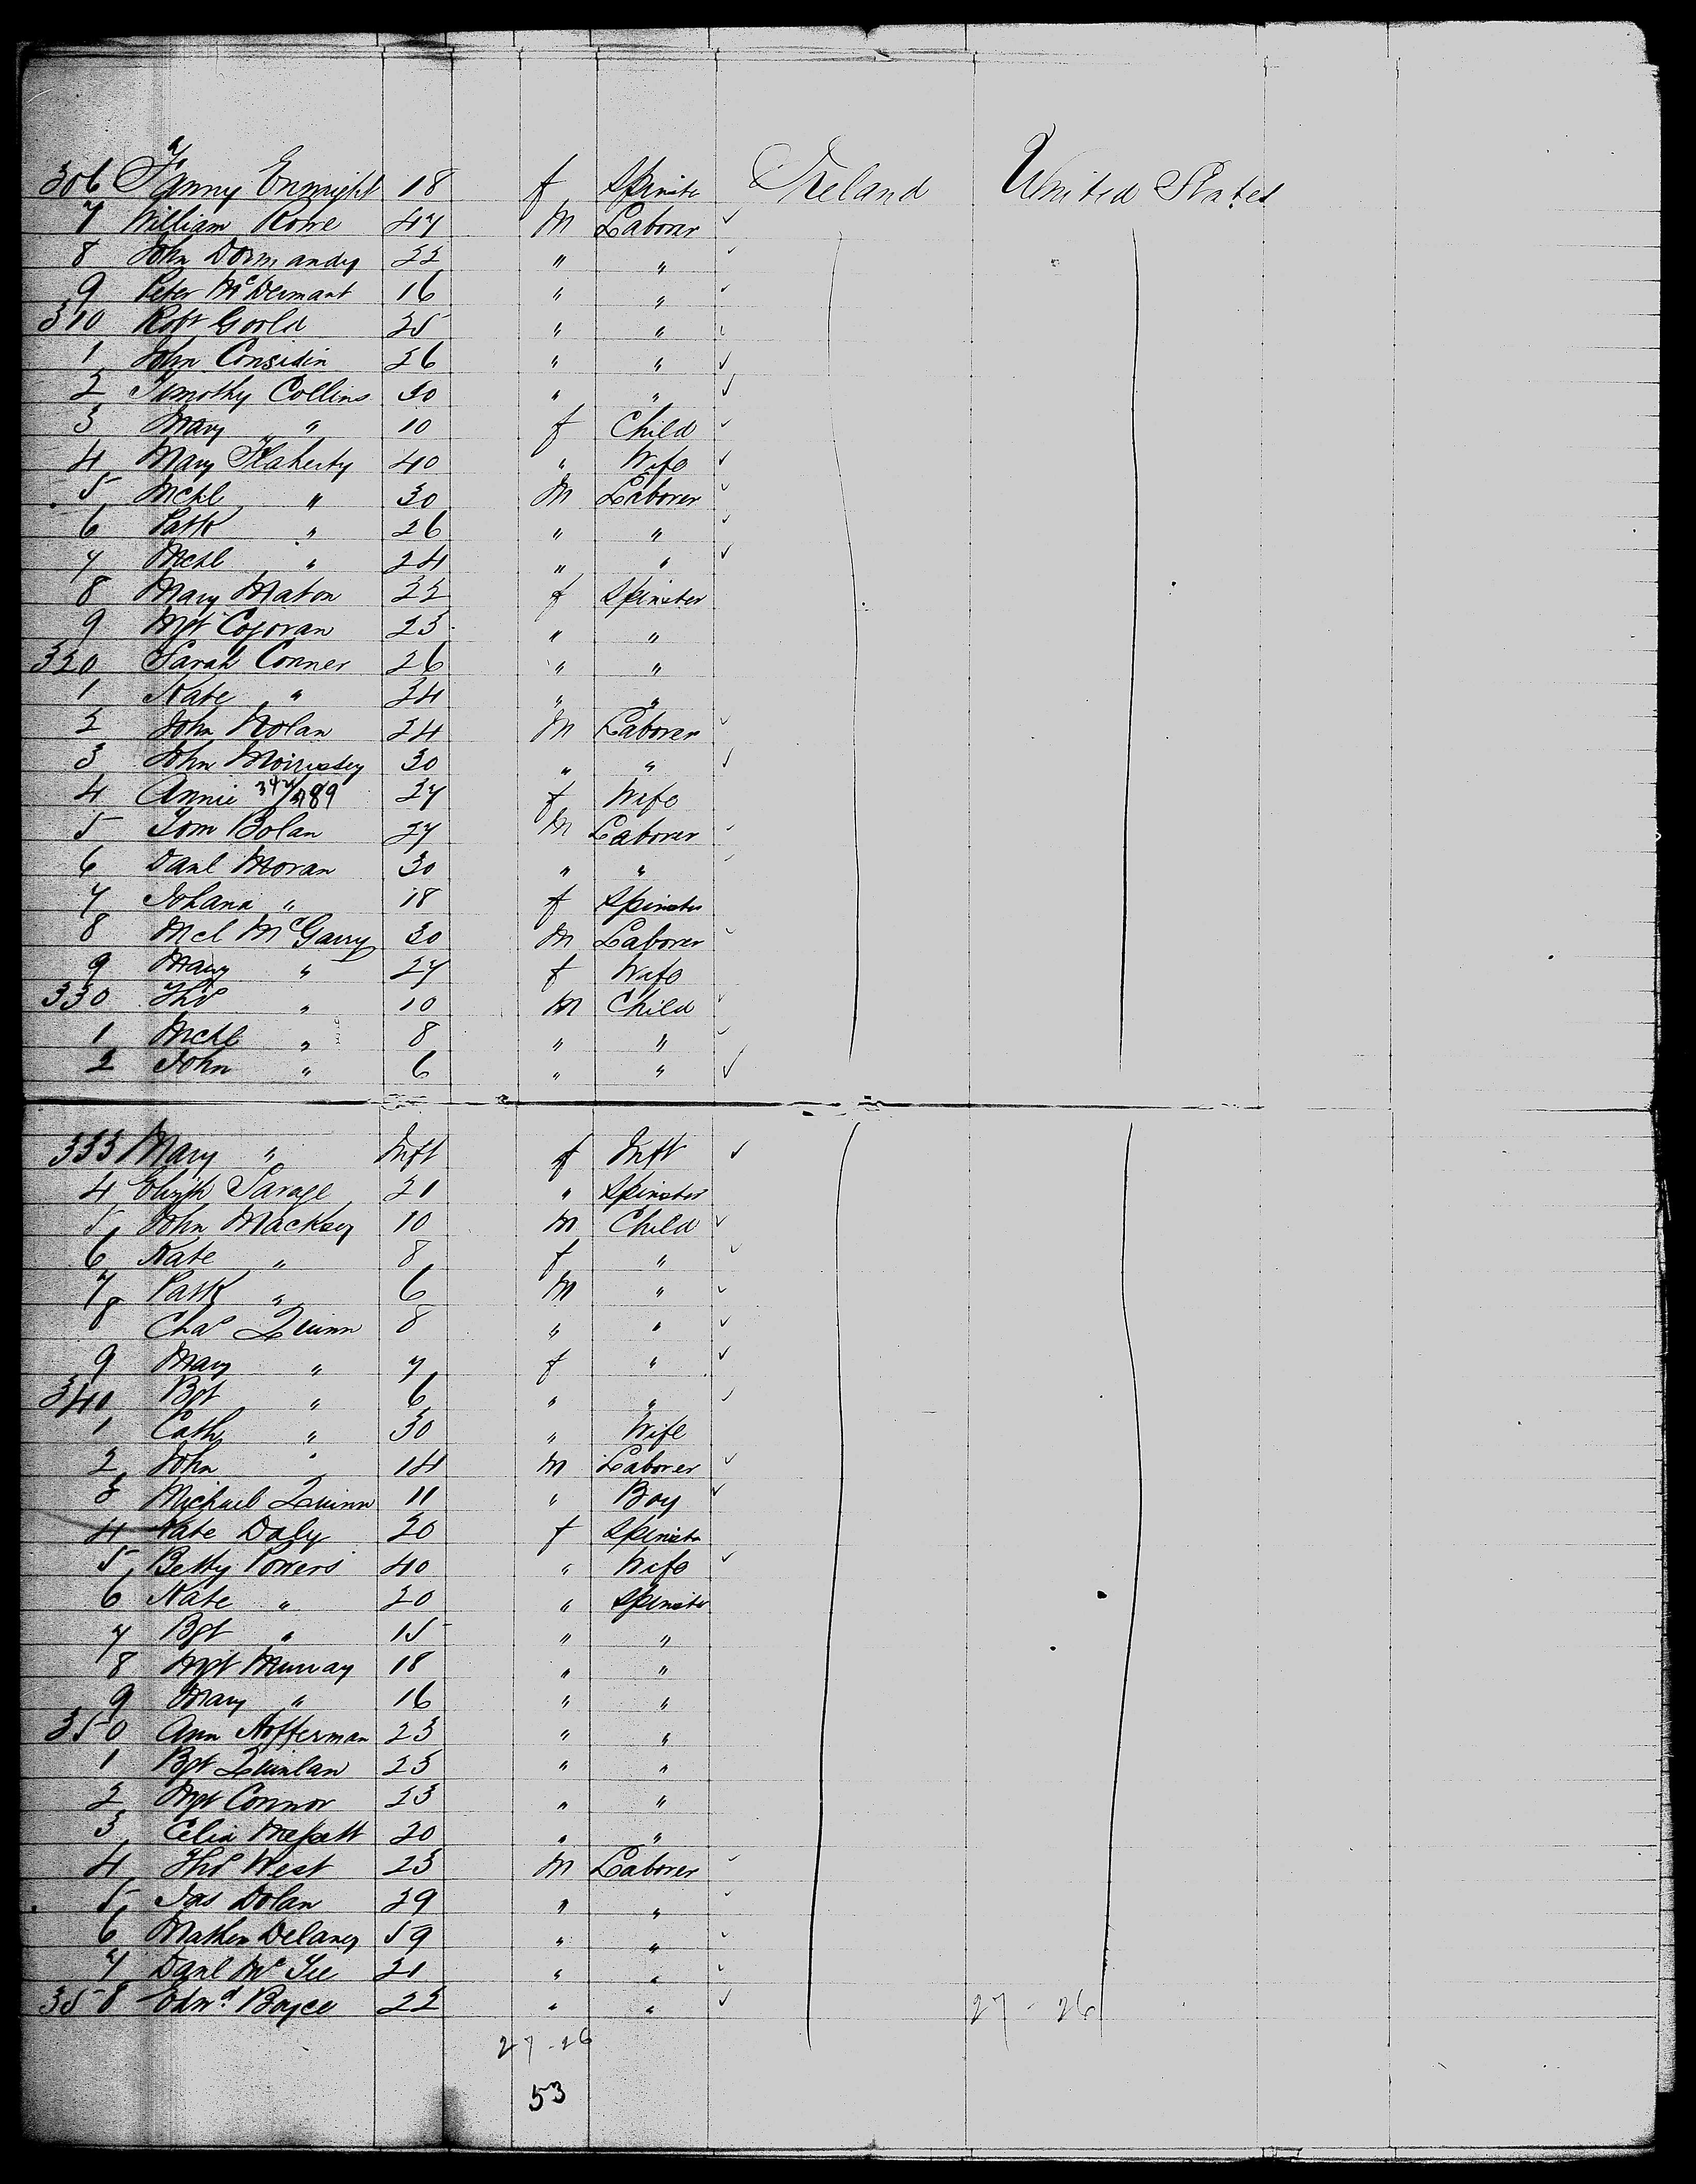 306 Fanny Enright 18 f Spinstr Ireland United States
7 William Rowe 47 M Laborer ✓
8 John Dormandy 22 " " ✓
9 Peter McDermant 16 " " ✓
310 Robt Goold 25 " " ✓
1 John Considin 26 " " ✓
2 Timothy Collins 30 " " ✓
3 Mary " 10 f Child ✓
4 Mary Flaherty 40 " Wife ✓
5 Mchl " 30 M Laborer ✓
6 Patk " 26 " " ✓
7 Mchl " 24 " " ✓
8 Mary Maton 22 f Spinster
9 Mgt Cogovan 23 " "
320 Sarah Conner 26 " "
1 Kate " 24 " "
2 John Nolan 24 M Laborer ✓
3 John Morrissey 30 " " ✓
4 Annie 27 f Wife
5 Tom Bolan 27 M Laborer ✓
6 Danl Moran 30 " " ✓
7 Johana " 18 f Spinster
8 Mcl McGarry 30 M Laborer ✓
9 Mary " 27 f Wife
330 Thos " 10 M Child ✓
1 Mchl " 8 " " ✓
2 John " 6 " " ✓
333 Mary " Inft f Inft ✓
4 Elizth Savage 21 " Spinster
5 John Macksey 10 M Child ✓
6 Kate " 8 f " ✓
7 Patk " 6 M " ✓
8 Chas Quinn 8 " " ✓
9 Mary " 7 f " ✓
340 Bgt " 6 " " ✓
1 Cath " 30 " Wife
2 John " 14 M Laborer ✓
3 Michael Quinn 11 " Boy ✓
4 Kate Daly 20 f Spinstr
5 Betty Powers 40 " Wife ✓
6 Kate " 20 " Spinster
7 Bgt " 15 " "
8 Mgt Murray 18 " "
9 Mary " 16 " "
350 Ann Hofferman 23 " "
1 Bgt Quinlan 25 " "
2 Mgt Connor 23 " "
3 Celia 20 " "
4 Thos West 23 M Laborer ✓
5 Jas Dolan 29 " " ✓
6 Mathew Delaney 59 " " ✓
7 Danl McGee 21 " " ✓
358 Edwd Boyce 22 " " ✓ 27 - 26
27 - 26
53